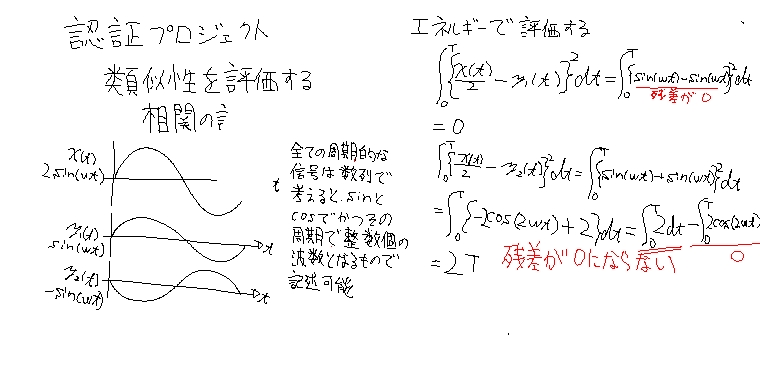 認証プロジェクト
類似性を評価する
相関の話
x(t)
2sin(ωt)
t
y₁(t)
sin(ωt)
t
y₂(t)
-sin(ωt)
t
全ての周期的な
信号は数列で
考えると、sinと
cosでかつその
周期で整数個の
波数となるもので
記述可能
エネルギーで評価する
∫₀ᵀ{x(t)/2 - y₁(t)}²dt = ∫₀ᵀ{sin(ωt) - sin(ωt)}²dt
残差が0
= 0
∫₀ᵀ{x(t)/2 - y₂(t)}²dt = ∫₀ᵀ{sin(ωt) + sin(ωt)}²dt
= ∫₀ᵀ{-2cos(2ωt) + 2}dt = ∫₀ᵀ2dt - ∫₀ᵀ2cos(2ωt)
0
= 2T 残差が0にならない